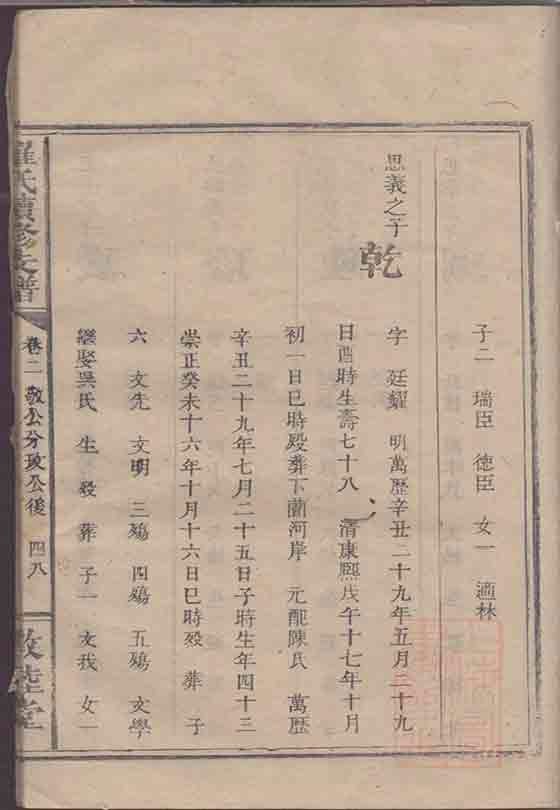 子二 瑞臣 德臣 女一 適林
思義之子
乾
字 廷耀 明萬歷辛丑二十九年五月二十九
日酉時生壽七十八 清康熙戊午十七年十月
初一日巳時殁葬下蘭河岸 元配陳氏 萬歷
辛丑二十九年七月二十五日子時生年四十三
崇正癸未十六年十月十六日巳時殁 葬 子
六 文先 文明 三殤 四殤 五殤 文學
繼娶吳氏 生 殁 葬 子一 文我 女一
羅氏續修支譜
卷二 敬公分政公後 四八
敦睦堂